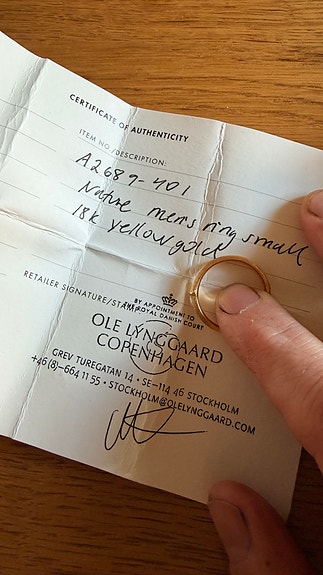 CERTIFICATE OF AUTHENTICITY
ITEM NO/DESCRIPTION:
A2689-401
Nature men's ring small
18k yellow gold
RETAILER SIGNATURE/STAMP:
BY APPOINTMENT TO
THE ROYAL DANISH COURT
OLE LYNGGAARD
COPENHAGEN
GREV TUREGATAN 14 • SE-114 46 STOCKHOLM
+46(8)-664 11 55 • STOCKHOLM@OLELYNGGAARD.COM